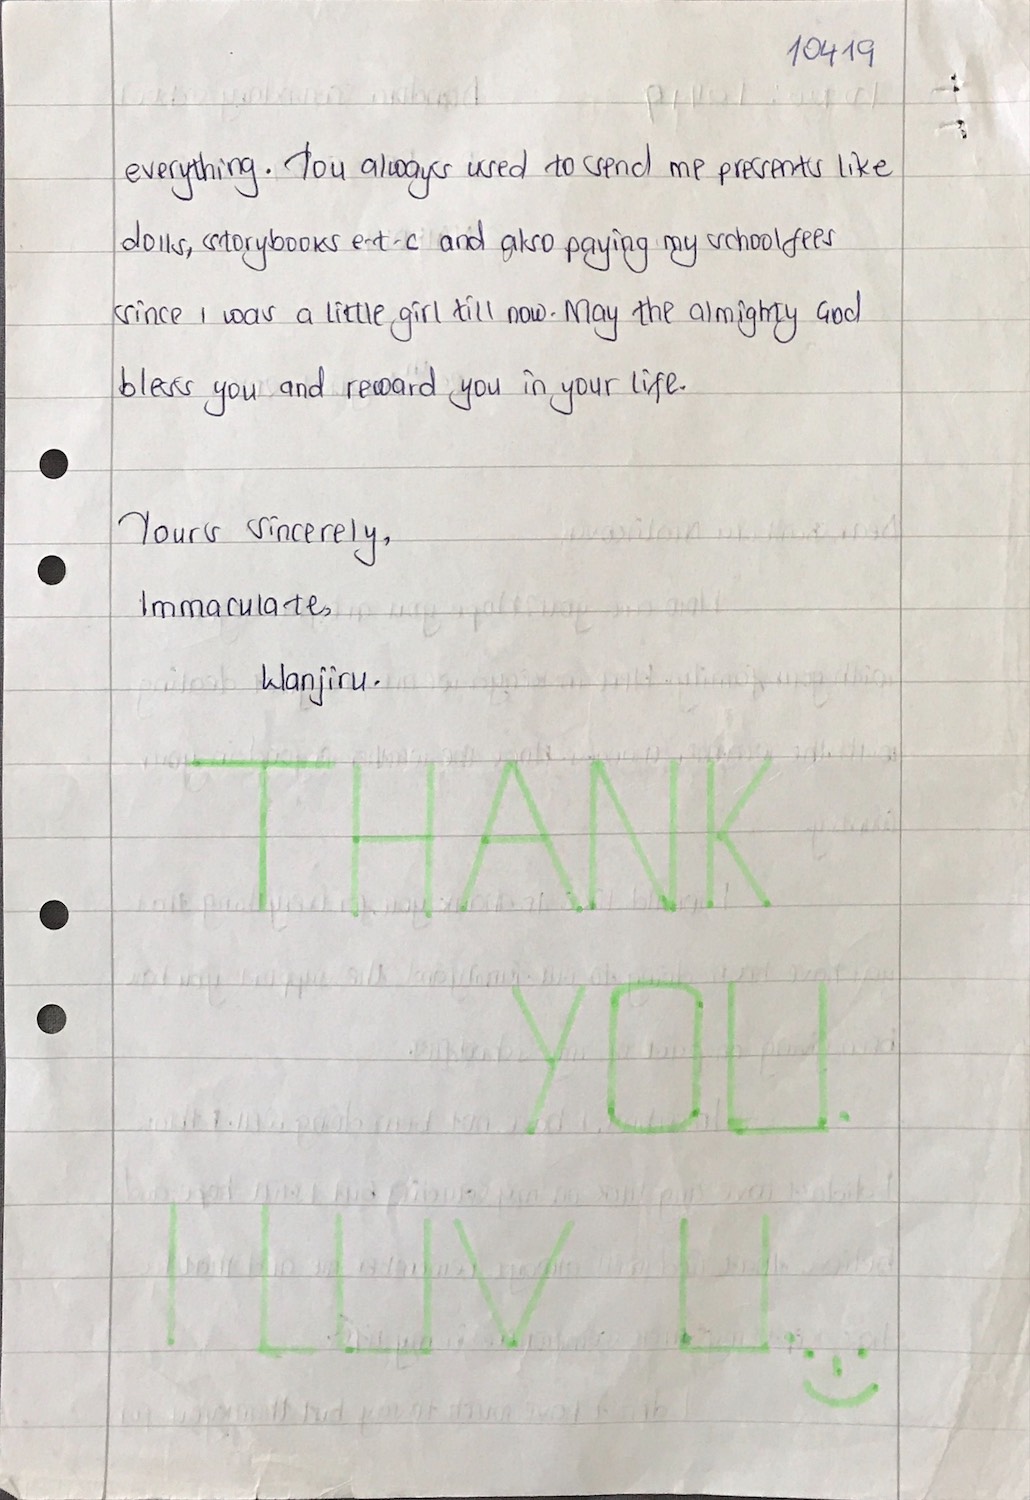 10419
everything. You always used to send me presents like
dolls, storybooks e-t-c and also paying my schoolfees
since I was a little girl till now. May the almighty God
bless you and reward you in your life.
Yours sincerely,
Immaculate,
Wanjiru.
THANK
YOU.
I LUV U.